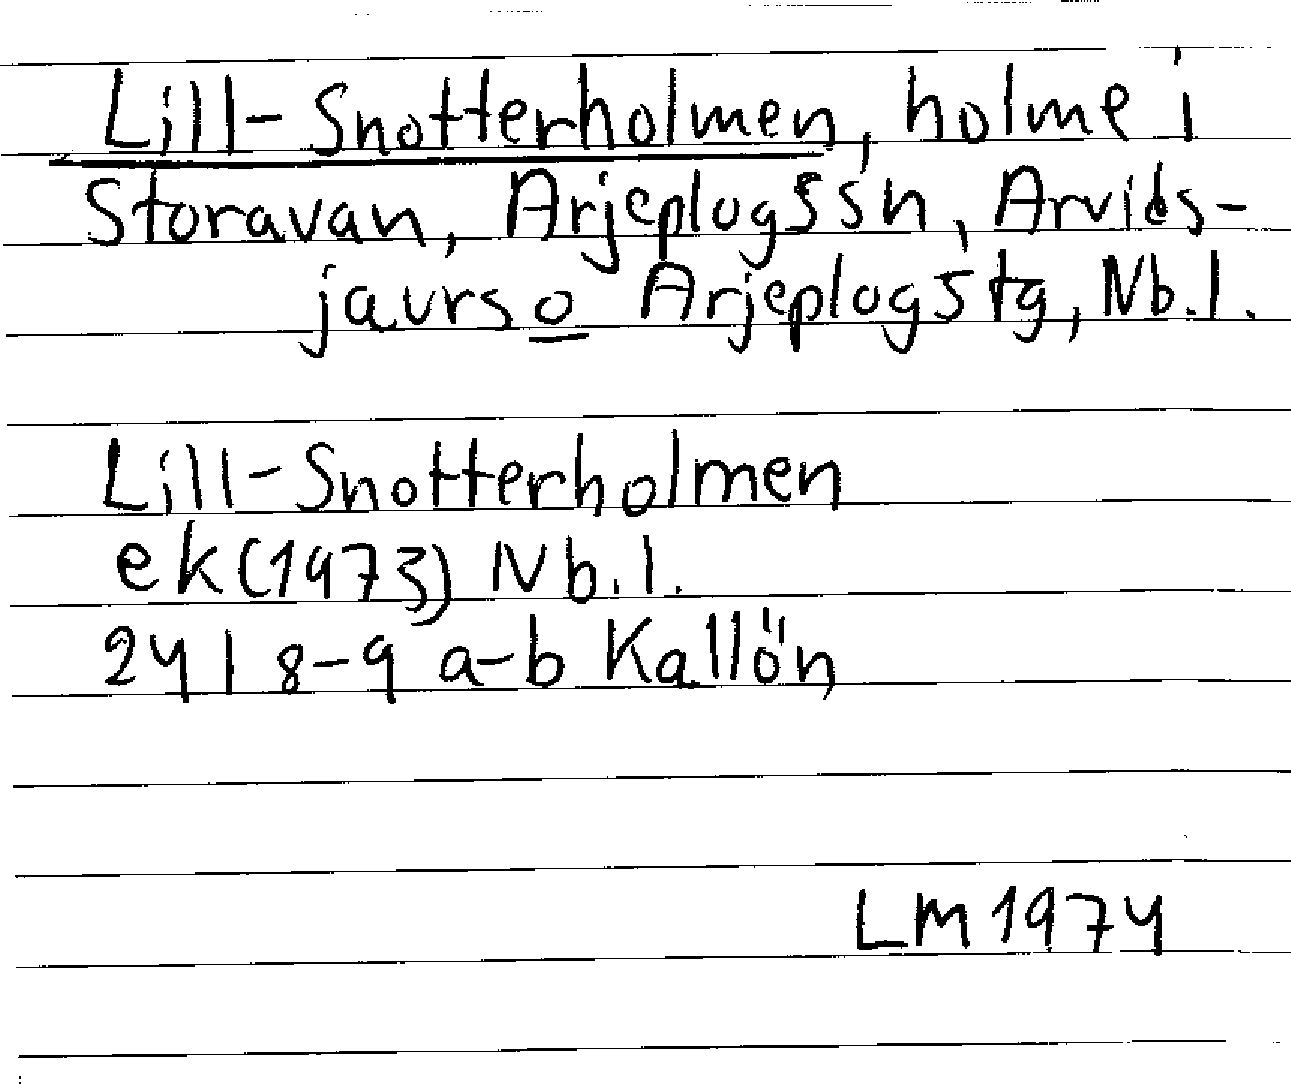 Lill-Snotterholmen, holme i
Storavan, Arjeplogs sn, Arvids-
jaurs o Arjeplogs tg, Nb.l.
Lill-Snotterholmen
ek (1973) Nb.l.
24 I 8-9 a-b Kallön
LM 1974